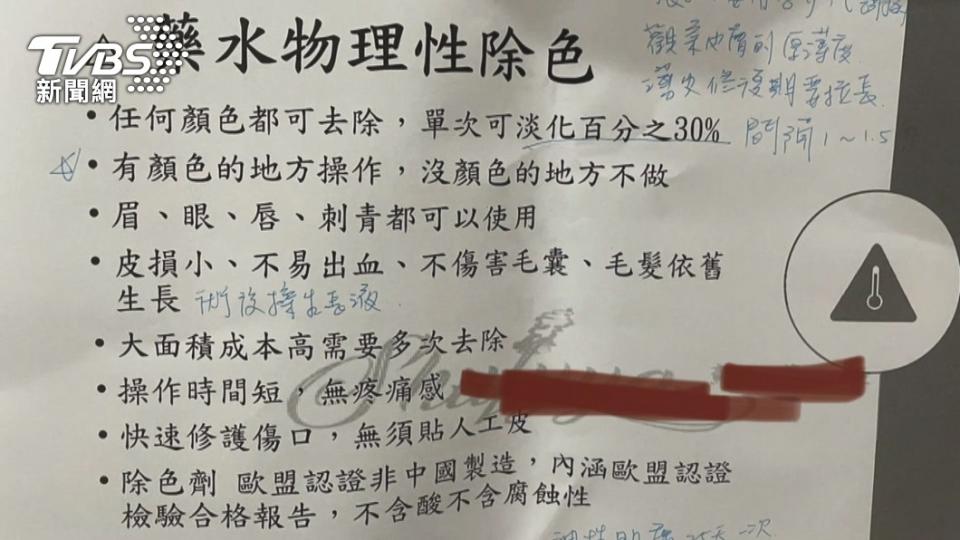 TVBS
新聞網
藥水物理性除色
觀察皮膚的厚薄度
•任何顏色都可去除，單次可淡化百分之30% 間隔1~1.5
•有顏色的地方操作，沒顏色的地方不做
•眉、眼、唇、刺青都可以使用
•皮損小、不易出血、不傷害毛囊、毛髮依舊
生長 術後擦生長液.
•大面積成本高需要多次去除
•操作時間短，無疼痛感
•快速修護傷口，無須貼人工皮
•除色劑 歐盟認證非中國製造，內涵歐盟認證
檢驗合格報告，不含酸不含腐蝕性